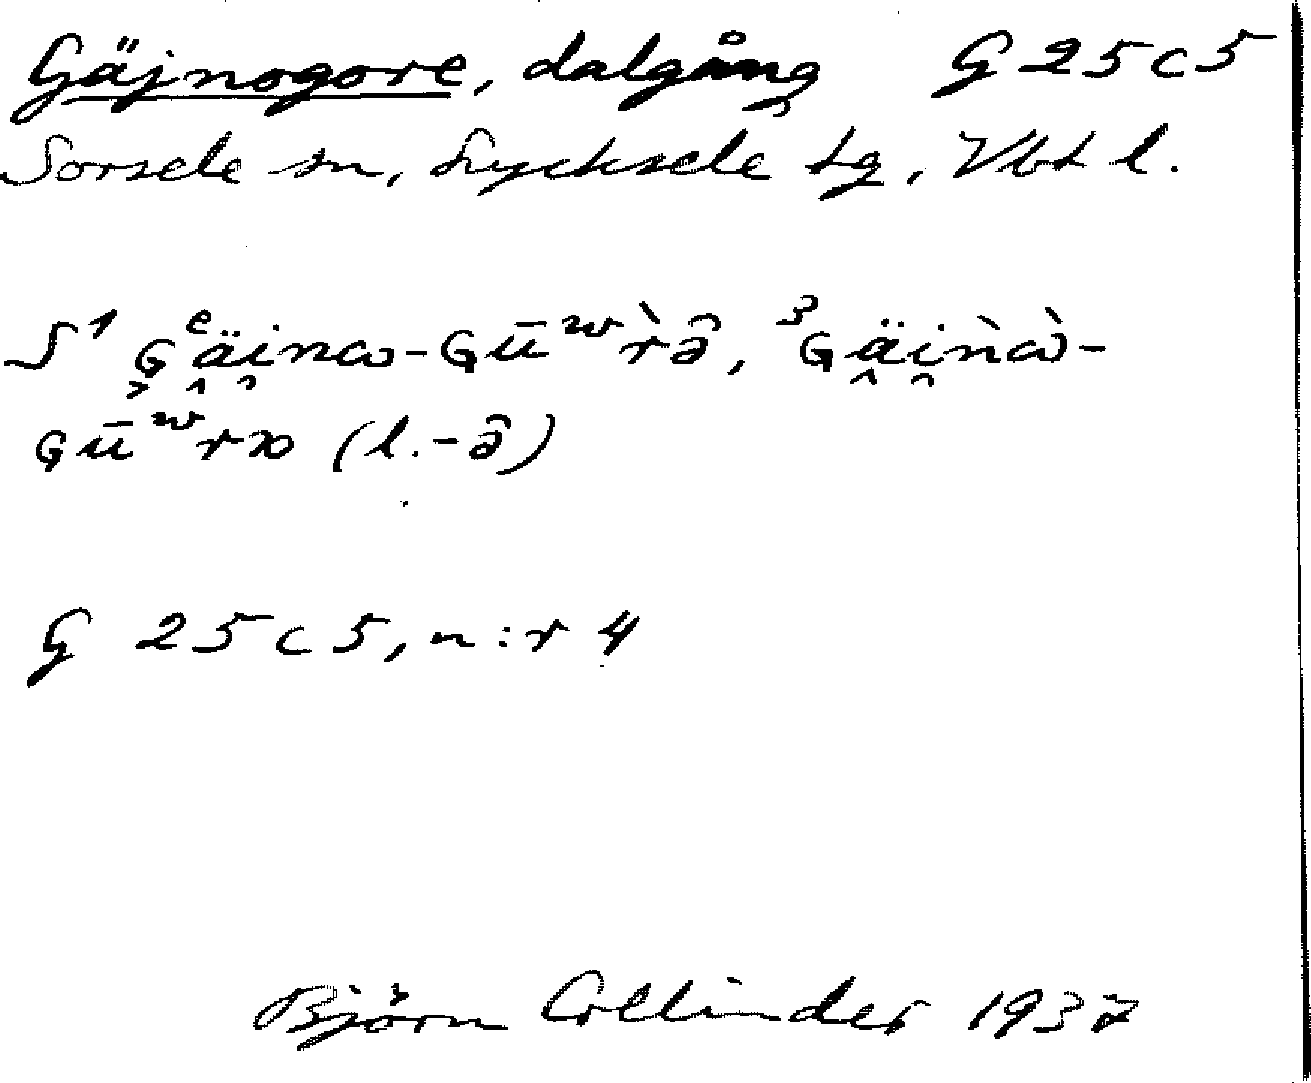 Gäjnogore, dalgång G 25 c 5
Sorsele sn, Lycksele tg, Vbt l.
S¹ G̬ᵉä̭i̯nω-Gūʷr̀ə̂, ³Gä̭i̯ǹὼ-
Gūʷrɔ (l.-ə̂)
G 25 c 5, n:r 4
Björn Collinder 1937